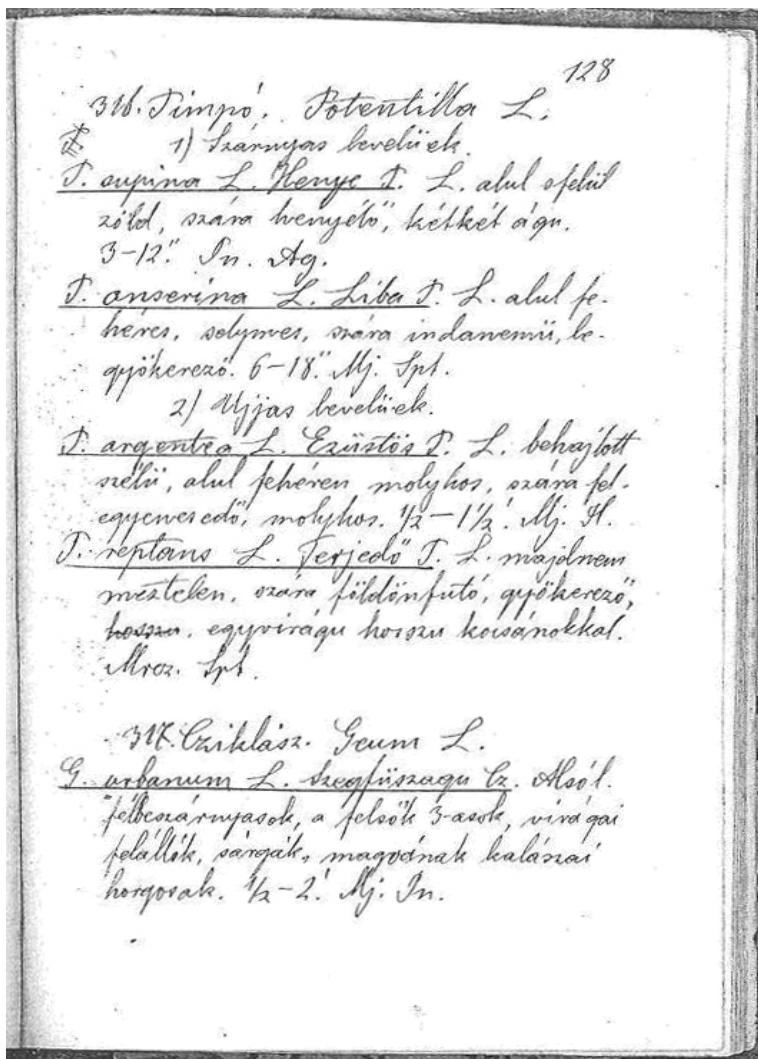 128
316. Timpó. Potentilla L.
1) Szárnyas levelüek.
P. supina L. Henye T. L. alul s felül
zöld, szára henyélő, kétkét águ.
3-12." Jn. Ag.
P. anserina L. Liba T. L. alul fe-
héres, selymes, szára indanemü, le-
gyökerező. 6-18." Mj. Spt.
2) Ujjas levelüek.
P. argentea L. Ezüstös T. L. behajlott
szélü, alul fehéren molyhos, szára fel-
egyenesedő, molyhos. ½-1½.' Mj. H.
P. reptans L. Terjedő T. L. majdnem
meztelen, szára földönfutó, gyökerező,
hosszu, egyvirágu hosszu kocsánokkal.
Mrcz. Spt.
317. Cziklász. Geum L.
G. urbanum L. Szegfüszagu Cz. Alsó l.
félbeszárnyasok, a felsők 3-asok, virágai
felállók, sárgák, magvának kalászai
horgosak. ½-2.' Mj. Jn.